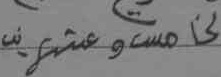 خامست وعشرين